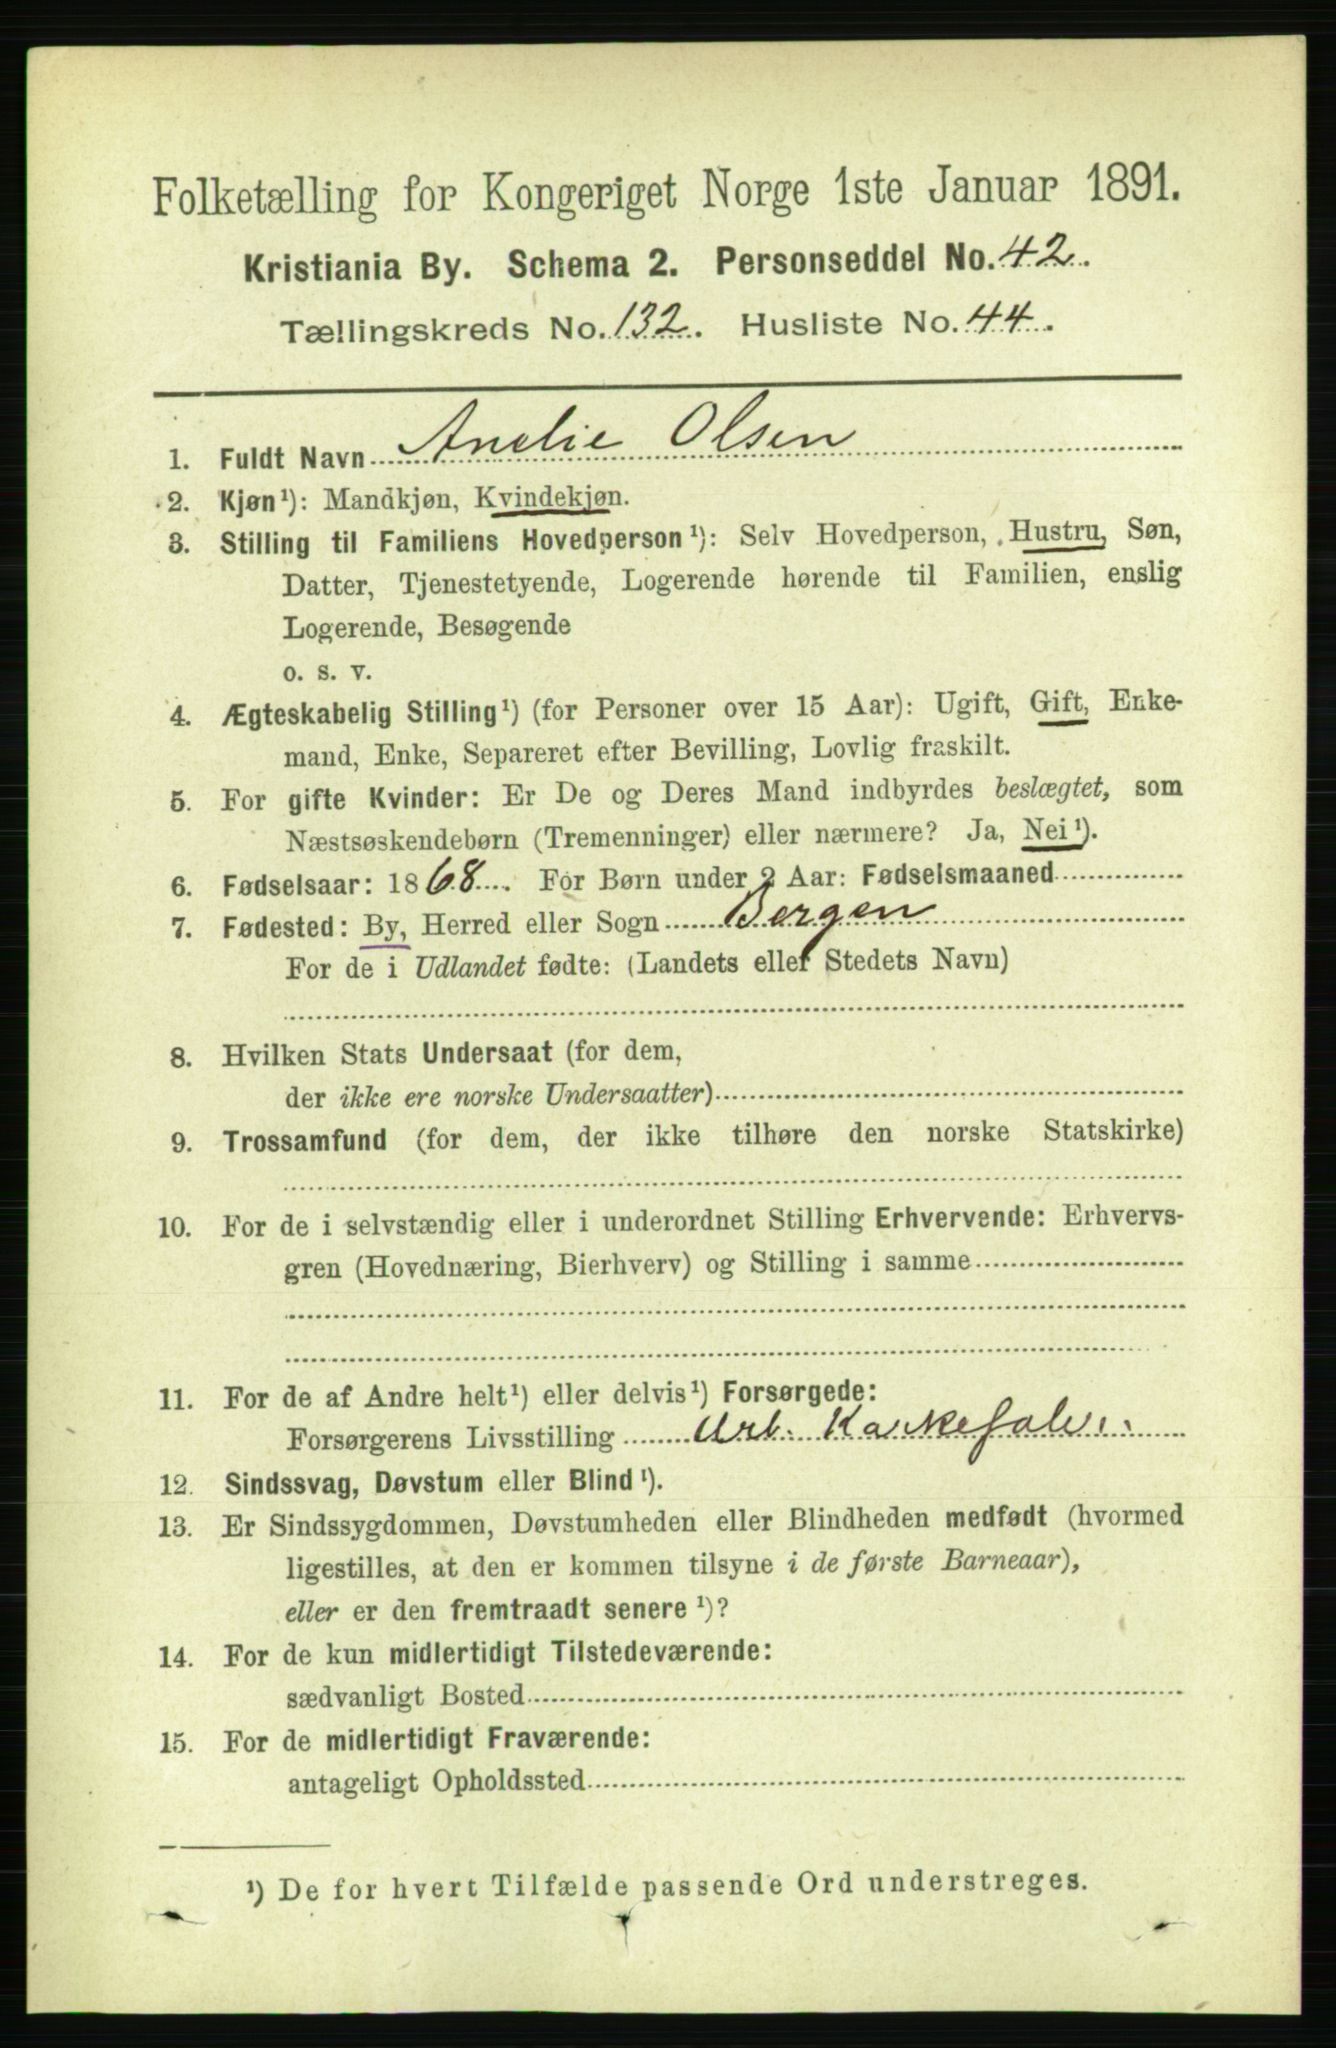 Folketælling for Kongeriget Norge 1ste Januar 1891.
Kristiania By. Schema 2. Personseddel No. 42.
Tællingskreds No. 132. Husliste No. 44.
1. Fuldt Navn Anelie Olsen
2. Kjøn¹): Mandkjøn, Kvindekjøn.
3. Stilling til Familiens Hovedperson¹): Selv Hovedperson, Hustru, Søn,
Datter, Tjenestetyende, Logerende hørende til Familien, enslig
Logerende, Besøgende
o. s. v.
4. Ægteskabelig Stilling¹) (for Personer over 15 Aar): Ugift, Gift, Enke-
mand, Enke, Separeret efter Bevilling, Lovlig fraskilt.
5. For gifte Kvinder: Er De og Deres Mand indbyrdes beslægtet, som
Næstsøskendebørn (Tremenninger) eller nærmere? Ja, Nei¹).
6. Fødselsaar: 1868. For Børn under 2 Aar: Fødselsmaaned
7. Fødested: By, Herred eller Sogn Bergen
For de i Udlandet fødte: (Landets eller Stedets Navn)
8. Hvilken Stats Undersaat (for dem,
der ikke ere norske Undersaatter)
9. Trossamfund (for dem, der ikke tilhøre den norske Statskirke)
10. For de i selvstændig eller i underordnet Stilling Erhvervende: Erhvervs-
gren (Hovednæring, Bierhverv) og Stilling i samme
11. For de af Andre helt¹) eller delvis¹) Forsørgede:
Forsørgerens Livsstilling Arb.
12. Sindssvag, Døvstum eller Blind¹).
13. Er Sindssygdommen, Døvstumheden eller Blindheden medfødt (hvormed
ligestilles, at den er kommen tilsyne i de første Barneaar),
eller er den fremtraadt senere¹)?
14. For de kun midlertidigt Tilstedeværende:
sædvanligt Bosted
15. For de midlertidigt Fraværende:
antageligt Opholdssted
¹) De for hvert Tilfælde passende Ord understreges.